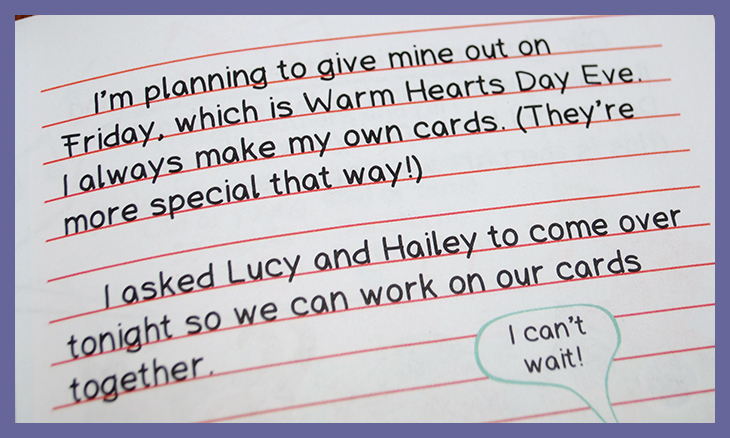 I'm planning to give mine out on
Friday, which is Warm Hearts Day Eve.
I always make my own cards. (They're
more special that way!)
I asked Lucy and Hailey to come over
tonight so we can work on our cards
together.
I can't
wait!